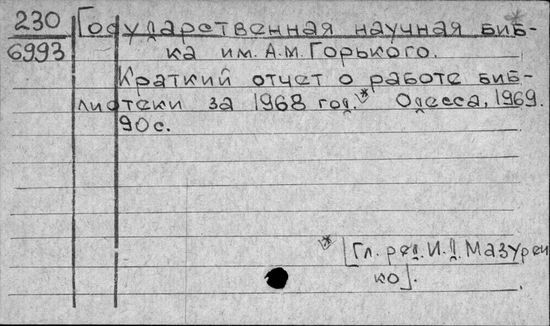 230 Государственная научная биб-
6993 ка им. А.М. Горького.
Краткий отчет о работе биб-
лиотеки за 1968 год. Одесса, 1969.
90с.
[Гл. ред. И. П. Мазурен
ко].